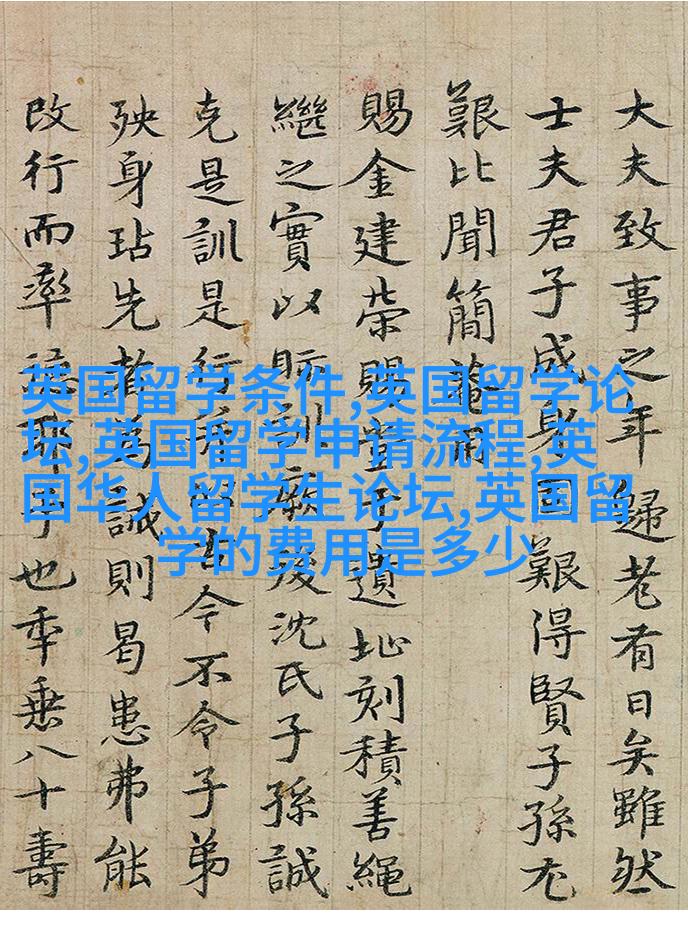 大夫致事之年歸老有日矣雖然
士夫君子成艱得賢子孫尤
艱比聞簡菴
賜金建荣賜子遺址刻積善繩
繼之實以貽訓厥後沈氏子孫誠
克是訓是行令不令子弟
殃身玷先者為誡則曷患弗能
改行而率德耶予也年垂八十壽
英国留学条件,英国留学论
坛,英国留学申请流程,英
国华人留学生论坛,英国留
学的费用是多少